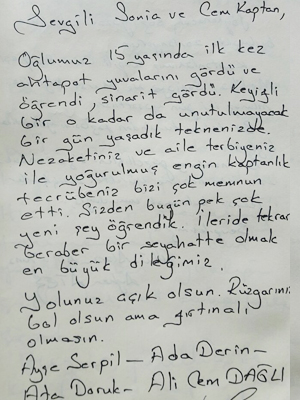 Sevgili Sonia ve Cem Kaptan,
Oğlumuz 15 yaşında ilk kez
ahtapot yuvalarını gördü ve
öğrendi, sinarit gördü. Keyifli
bir o kadar da unutulmayacak
bir gün yaşadık teknenizde.
Nezaketiniz ve aile terbiyeniz
ile yoğurulmuş engin kaptanlık
tecrübeniz bizi çok memnun
etti. Sizden bugün pek çok
yeni şey öğrendik. İleride tekrar
beraber bir seyahatte olmak
en büyük dileğimiz.
Yolunuz açık olsun. Rüzgarınız
bol olsun ama fırtınalı
olmasın.
Ayşe Serpil – Ada Derin –
Ata Doruk – Ali Cem DAĞLI